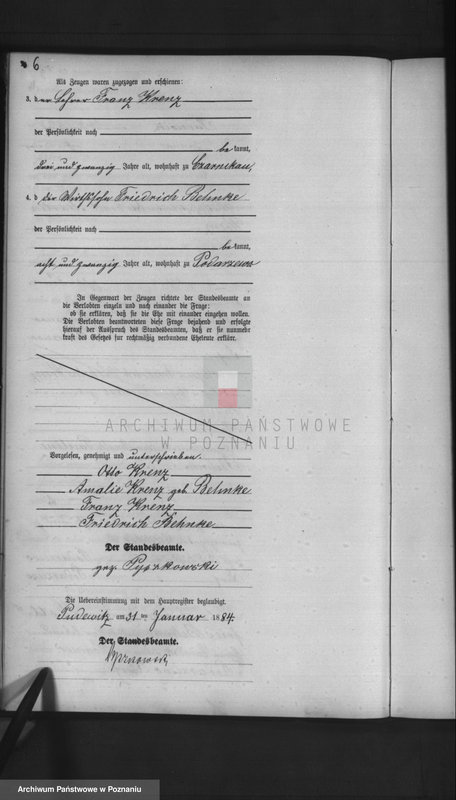 6
Als Zeugen waren zugezogen und erschienen:
3. der Lehrer Franz Krenz
der Persönlichkeit nach
be kannt,
drei und zwanzig Jahre alt, wohnhaft zu Czarnikau,
4. d der Wirthssohn Friedrich Behnke
der Persönlichkeit nach
be kannt,
acht und zwanzig Jahre alt, wohnhaft zu
In Gegenwart der Zeugen richtete der Standesbeamte an
die Verlobten einzeln und nach einander die Frage:
ob sie erklären, daß sie die Ehe mit einander eingehen wollen.
Die Verlobten beantworteten diese Frage bejahend und erfolgte
hierauf der Ausspruch des Standesbeamten, daß er sie nunmehr
kraft des Gesetzes für rechtmäßig verbundene Eheleute erkläre.
ARCHIWUM PAŃSTWOWE
W POZNANIU
Vorgelesen, genehmigt und unterschrieben.
Otto Krenz
Amalie Krenz geb Behnke
Franz Krenz
Friedrich Behnke
Der Standesbeamte.
gez.
Die Uebereinstimmung mit dem Hauptregister beglaubigt.
Pudewitz am 31 ten Januar 1884
Der Standesbeamte.
Archiwum Państwowe w Poznaniu